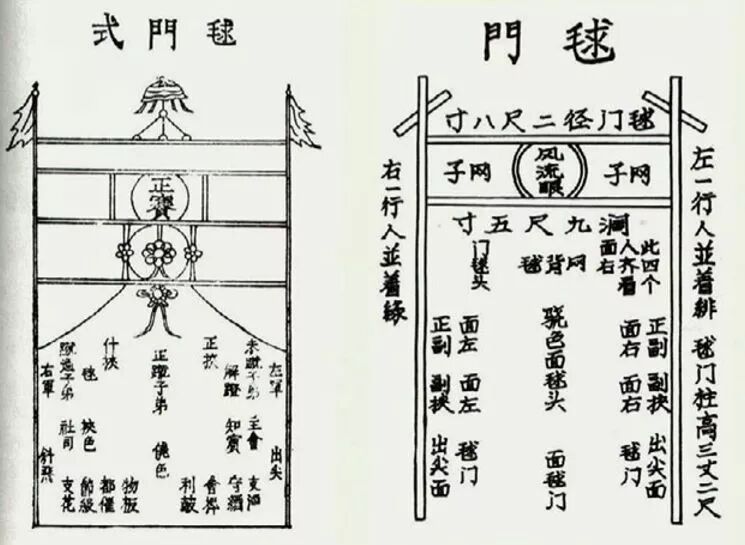 毬門式
正寶
左軍
出尖
主會
支酒
知賓
守酒
正挾
正蹴子弟
什挾
物板
都催
毬
挾色
節級
子弟
社司
支花
右軍
毬門
毬门径二尺八寸
网子
风流眼
网子
阔九尺五寸
此四个
人齐看
面右
网背毬
门毬头
左一行人並着緋
毬门柱高三丈二尺
正副
副挾
出尖面
面右
面右
毬门
骁色面毬头
面毬门
面左
面左
毬门
正副
副挾
出尖面
右一行人並着緑